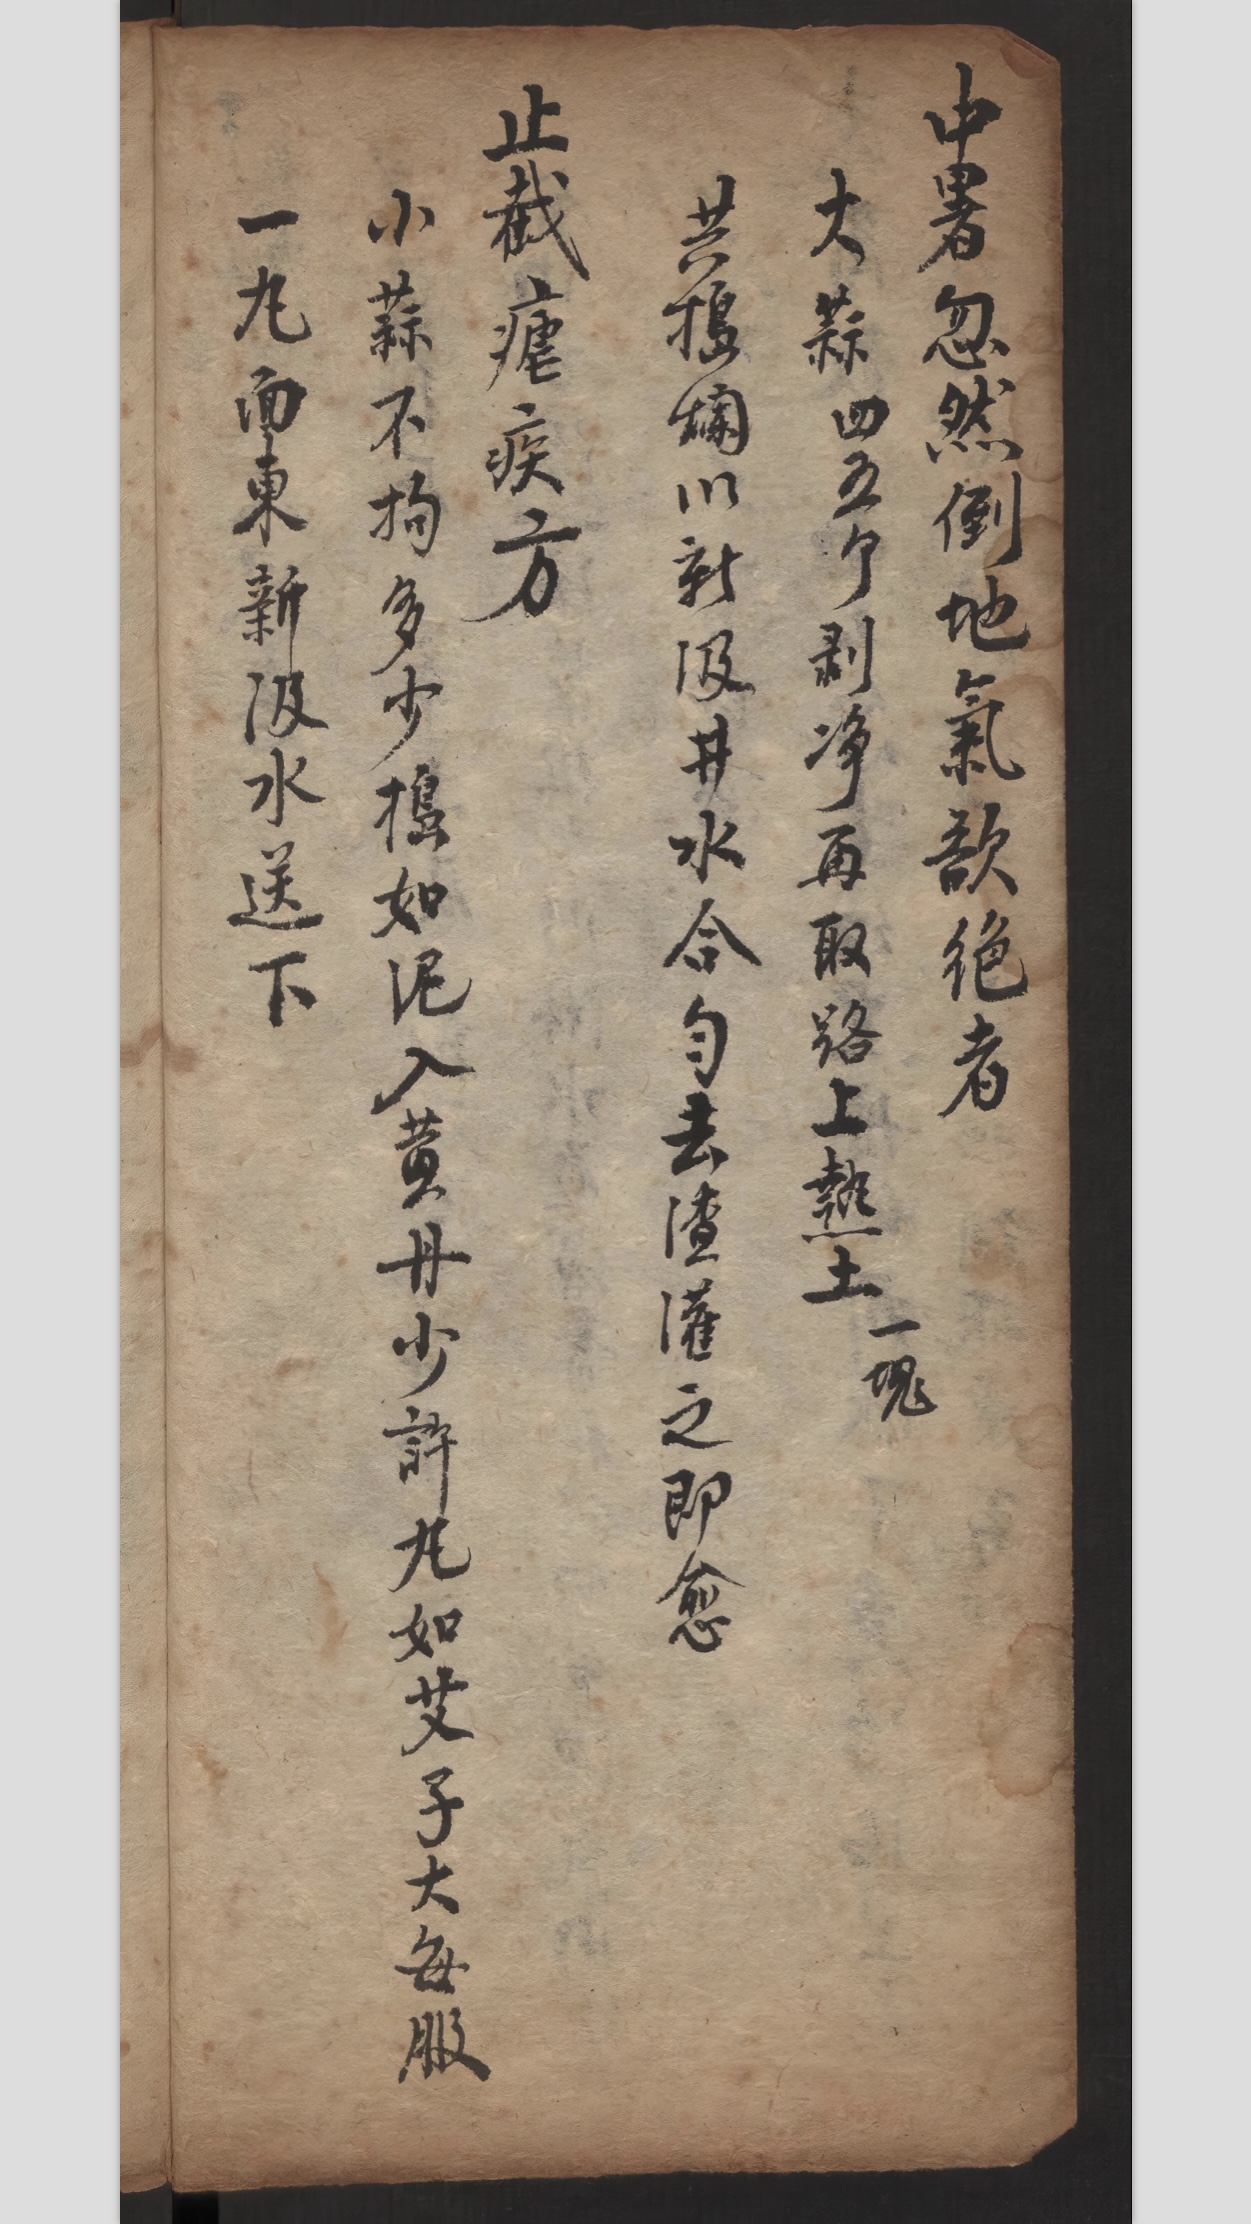 中暑忽然倒地氣欲絶者
大蒜四五个剥净再取路上熱土一塊
共搗爛以新汲井水合匀去渣灌之即愈
止截瘧疾方
小蒜不拘多少搗如泥入黄丹少許丸如芡子大每服
一丸面東新汲水送下